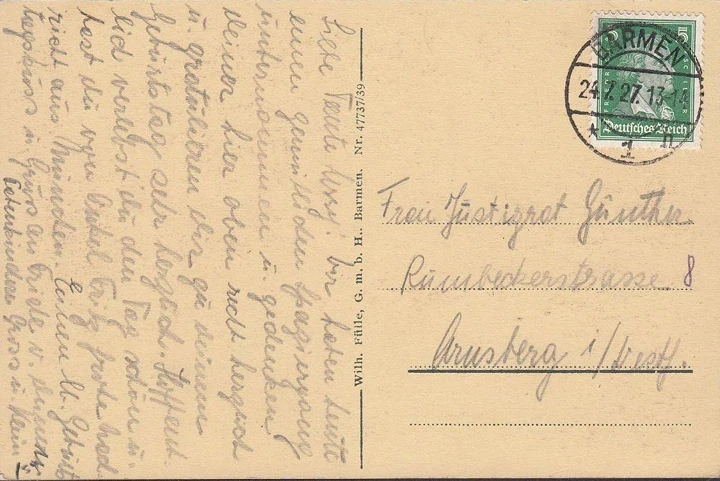 Liebe Tante Anny! Wir haben heute
einen gemütlichen Spaziergang
unternommen u. gedenken
deiner hier oben recht herzlich
u. gratulieren dir zu deinem
Geburtstag sehr herzlich. Hoffent-
lich verlebst du den Tag schön u.
hast du von Onkel Fritz gute Nach-
richt aus München. Einen lb. Geburts
tagskuss u. Gruss an Friedel v.
Gruss u. Kuss
Wilh. Fülle, G. m. b. H., Barmen. Nr. 47737/39
BARMEN
24.7.27.13-14
* 1 n
Deutsches Reich
Frau Justizrat Günther
Rumbeckerstrasse 8
Arnsberg i/Westf.